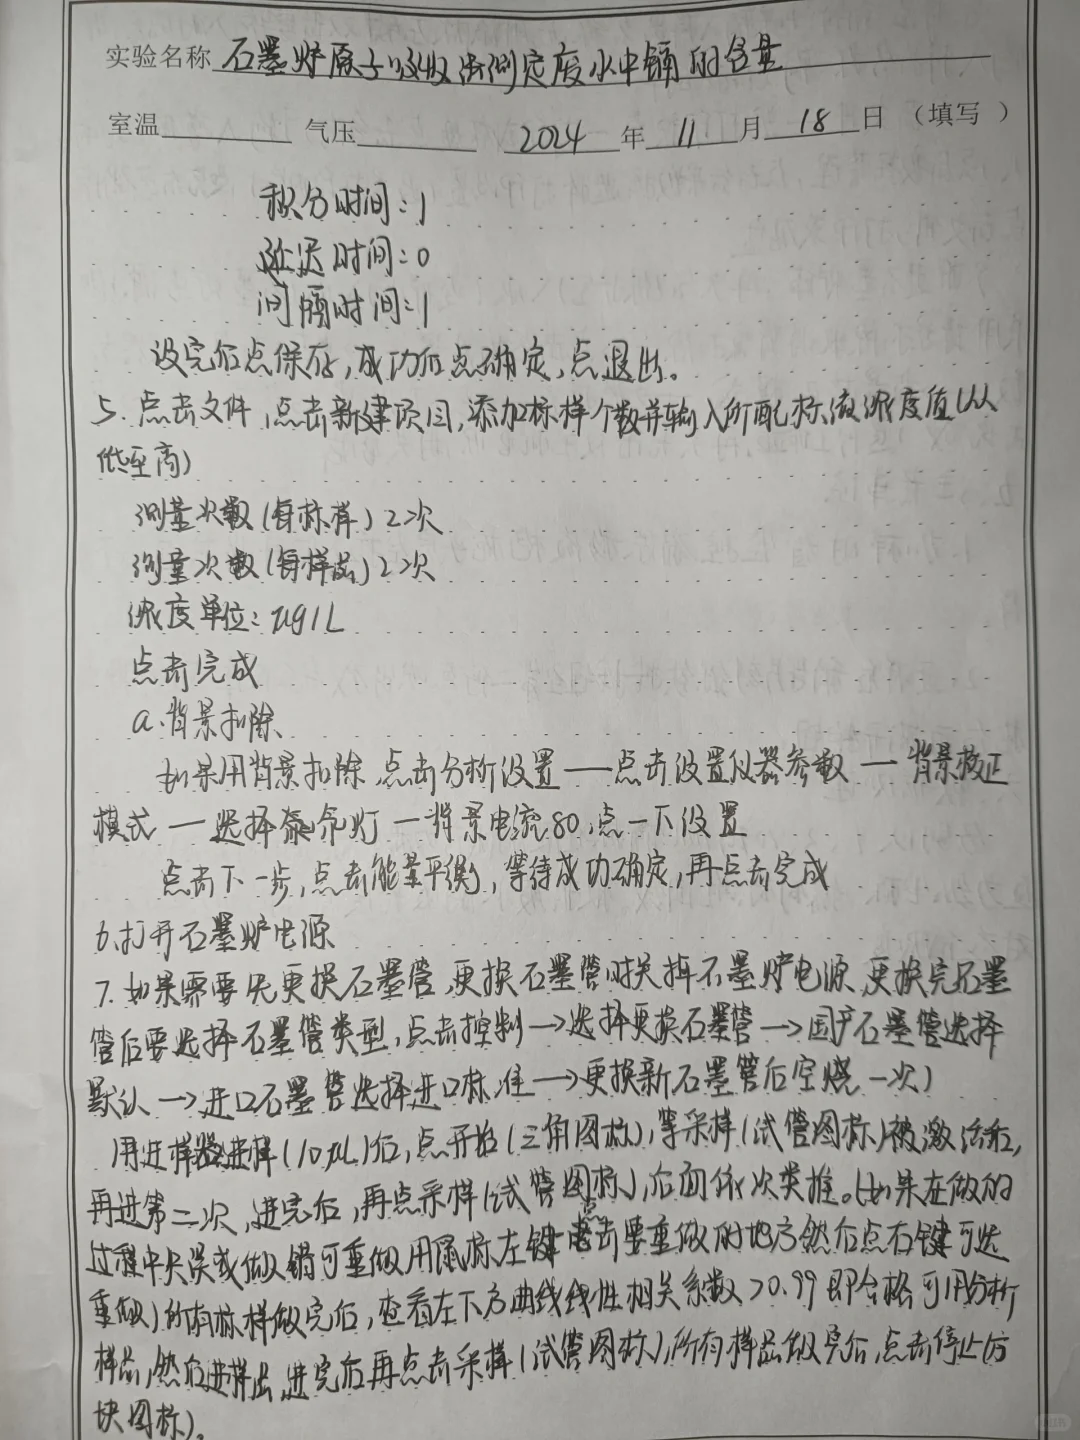 实验名称 石墨炉原子吸收法测定废水中镉的含量
室温 气压 2024 年 11 月 18 日 (填写 )
积分时间:1
延迟时间:0
间隔时间:1
设完后点保存,成功后点确定,点退出。
5.点击文件,点击新建项目,添加标样个数并输入所配标液浓度值(从
低至高)
测量次数(每标样)2次
测量次数(每样品)2次
浓度单位:ug/L
点击完成
a.背景扣除
如果用背景扣除,点击分析设置——点击设置仪器参数—背景校正
模式—选择氘灯—背景电流80,点一下设置
点击下一步,点击能量平衡,等待成功确定,再点击完成
6.打开石墨炉电源
7.如果需要先更换石墨管,更换石墨管时关掉石墨炉电源,更换完石墨
管后要选择石墨管类型,点击控制→选择更换石墨管→国产石墨管选择
默认→进口石墨管选择进口标准→更换新石墨管后空烧一次)
用进样器进样(10μL)后,点开始(三角图标),等采样(试管图标)被激活后,
再进第二次,进完后,再点采样(试管图标),后面依次类推。(如果在做的
过程中失误或做错可重做用鼠标左键点击要重做的地方然后点右键可选
重做)所有标样做完后,查看左下方曲线线性相关系数>0.99即合格可用分析
样品,然后进样品,进完后再点击采样(试管图标),所有样品做完后,点击停止(方
块图标)。